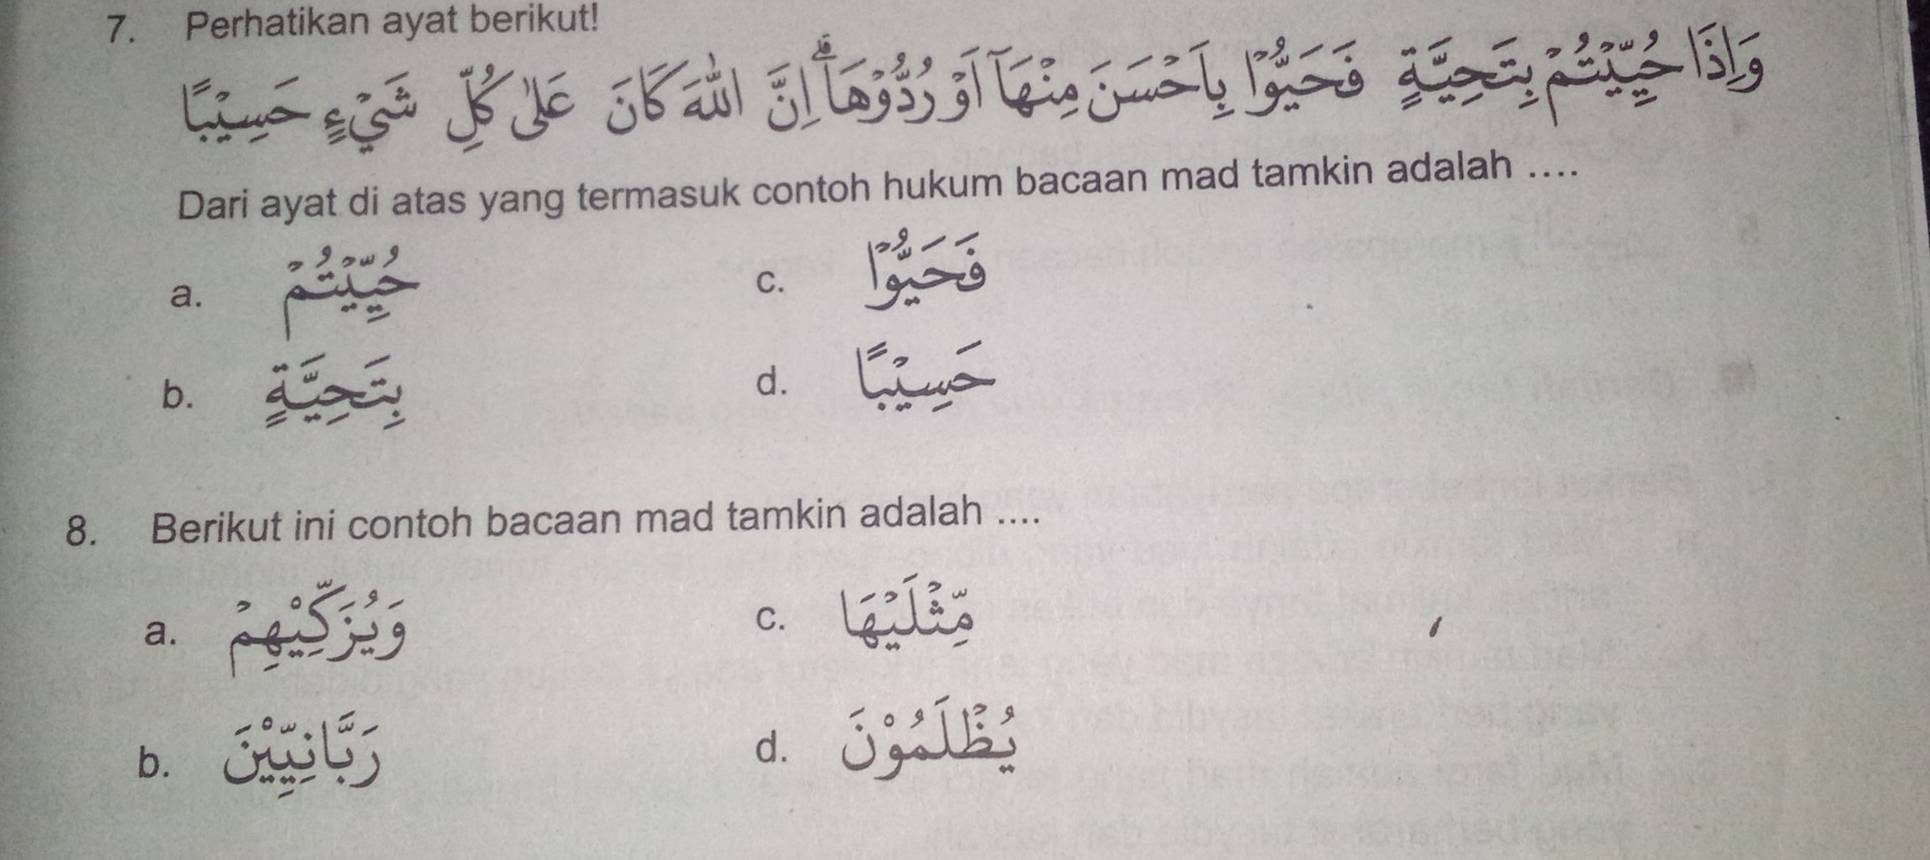 7. Perhatikan ayat berikut!
وَاِذَا حُيِّيْتُمْ بِتَحِيَّةٍ فَحَيُّوْا بِاَحْسَنَ مِنْهَآ اَوْ رُدُّوْهَا ۗ اِنَّ اللّٰهَ كَانَ عَلٰى كُلِّ شَيْءٍ حَسِيْبًا
Dari ayat di atas yang termasuk contoh hukum bacaan mad tamkin adalah ....
a. حُيِّيْتُمْ c. فَحَيُّوْا
b. بِتَحِيَّةٍ d. حَسِيْبًا
8. Berikut ini contoh bacaan mad tamkin adalah ....
a. وَيُزَكِّيْهِمْ c. مِّثْلَيْهَا
b. رَبَّانِيّٖيْنَ d. يُظْلَمُوْنَ